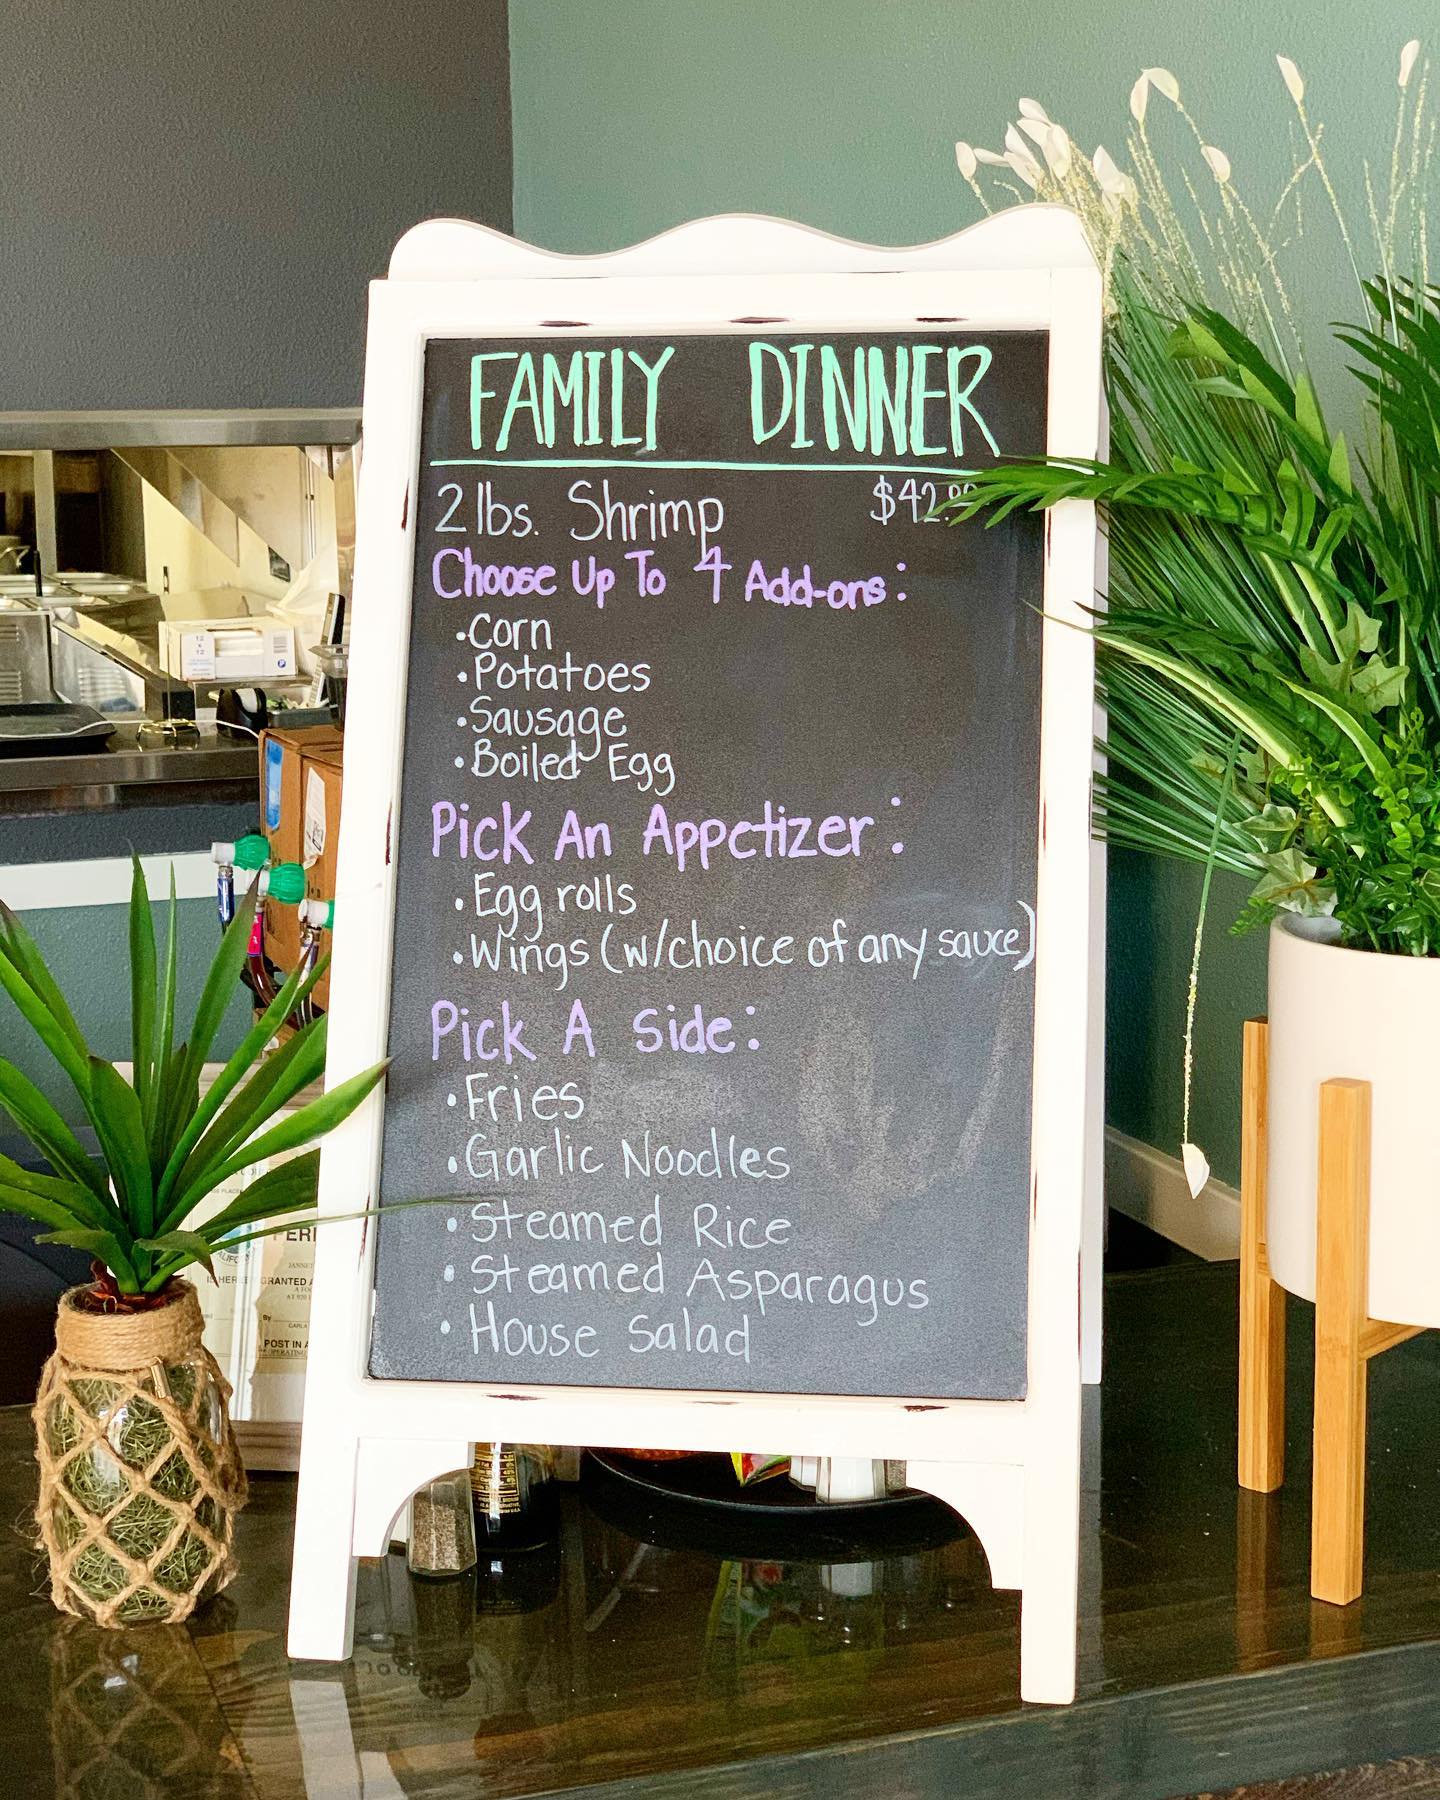 FAMILY DINNER
2 lbs. Shrimp
Choose Up To 4 Add-ons:
•Corn
•Potatoes
•Sausage
•Boiled Egg
Pick An Appetizer:
•Egg rolls
•Wings (w/choice of any sauce)
Pick A Side:
•Fries
•Garlic Noodles
•Steamed Rice
•Steamed Asparagus
•House Salad
GRANTED
POST IN